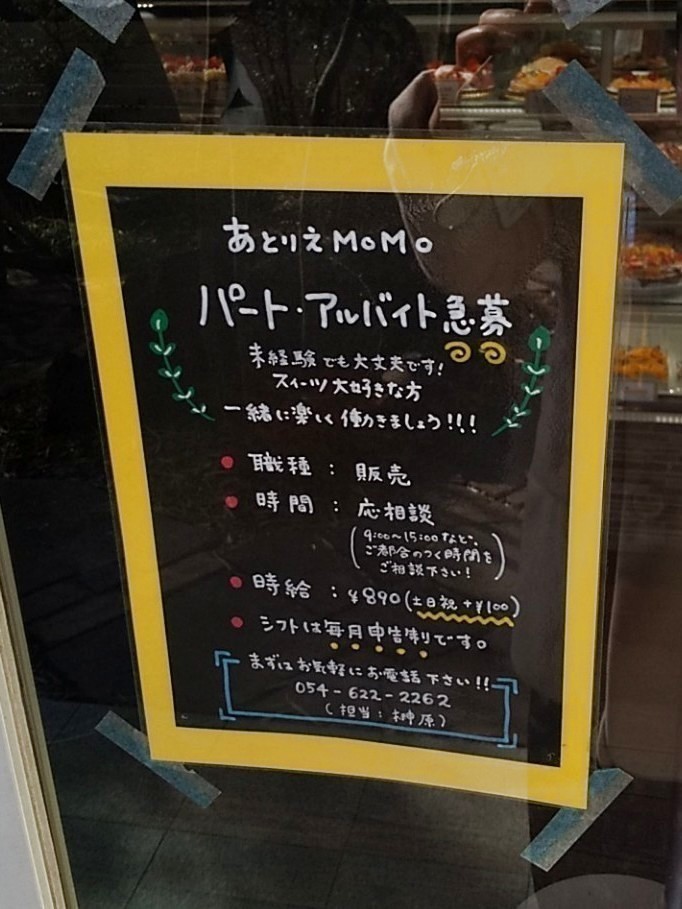 あとりえMoMo
パート・アルバイト急募
未経験でも大丈夫です!
スイーツ大好きな方
一緒に楽しく働きましょう!!!
● 職種 : 販売
● 時間 : 応相談
(9:00〜15:00など、
ご都合のつく時間を
ご相談下さい!)
● 時給 : ¥890(土日祝+¥100)
● シフトは毎月申告制です。
まずはお気軽にお電話下さい!!
054-622-2262
(担当:榊原)